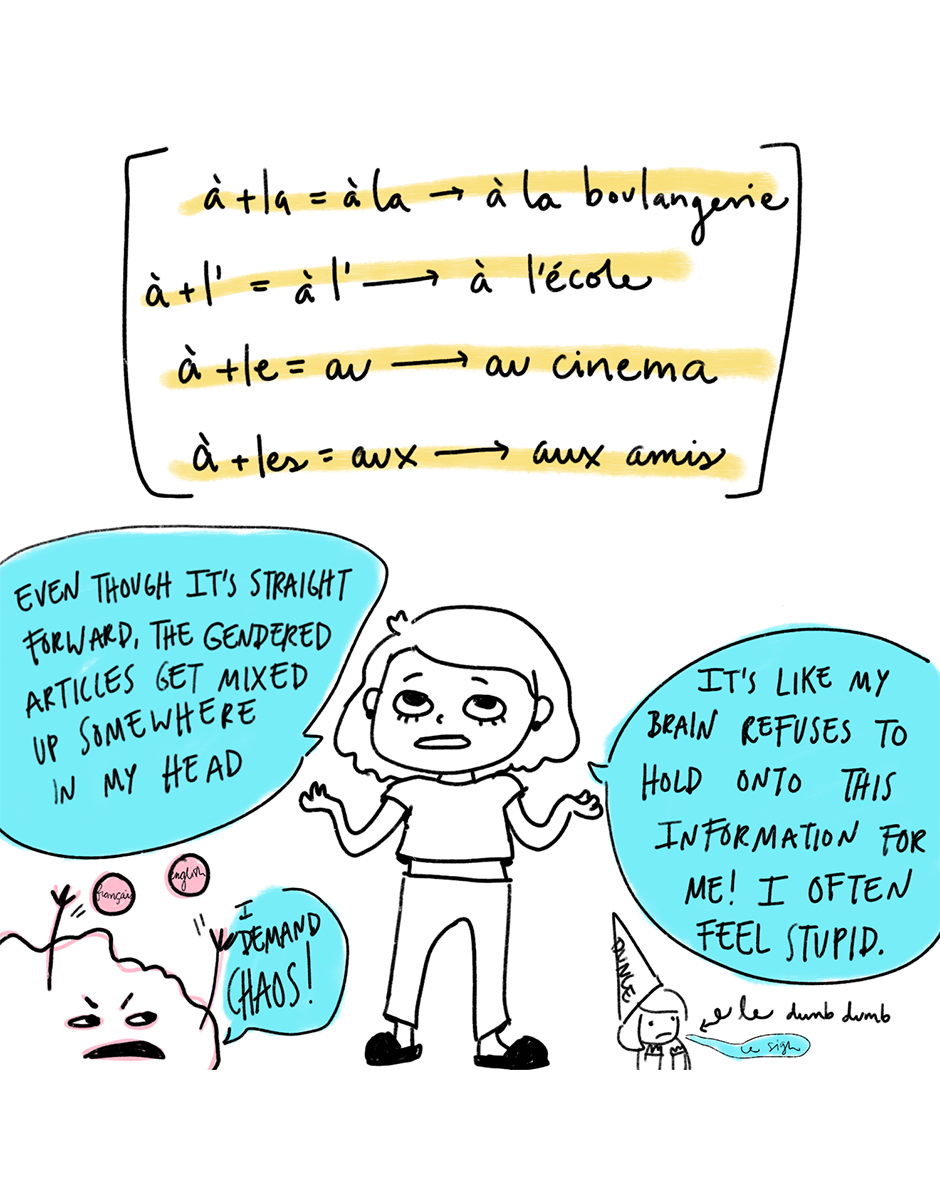 à + la = à la → à la boulangerie
à + l' = à l' → à l'école
à + le = au → au cinema
à + les = aux → aux amis
EVEN THOUGH IT'S STRAIGHT
FORWARD, THE GENDERED
ARTICLES GET MIXED
UP SOMEWHERE
IN MY HEAD
IT'S LIKE MY
BRAIN REFUSES TO
HOLD ONTO THIS
INFORMATION FOR
ME! I OFTEN
FEEL STUPID.
français
english
I
DEMAND
CHAOS!
DUNCE
le dumb dumb
le sigh